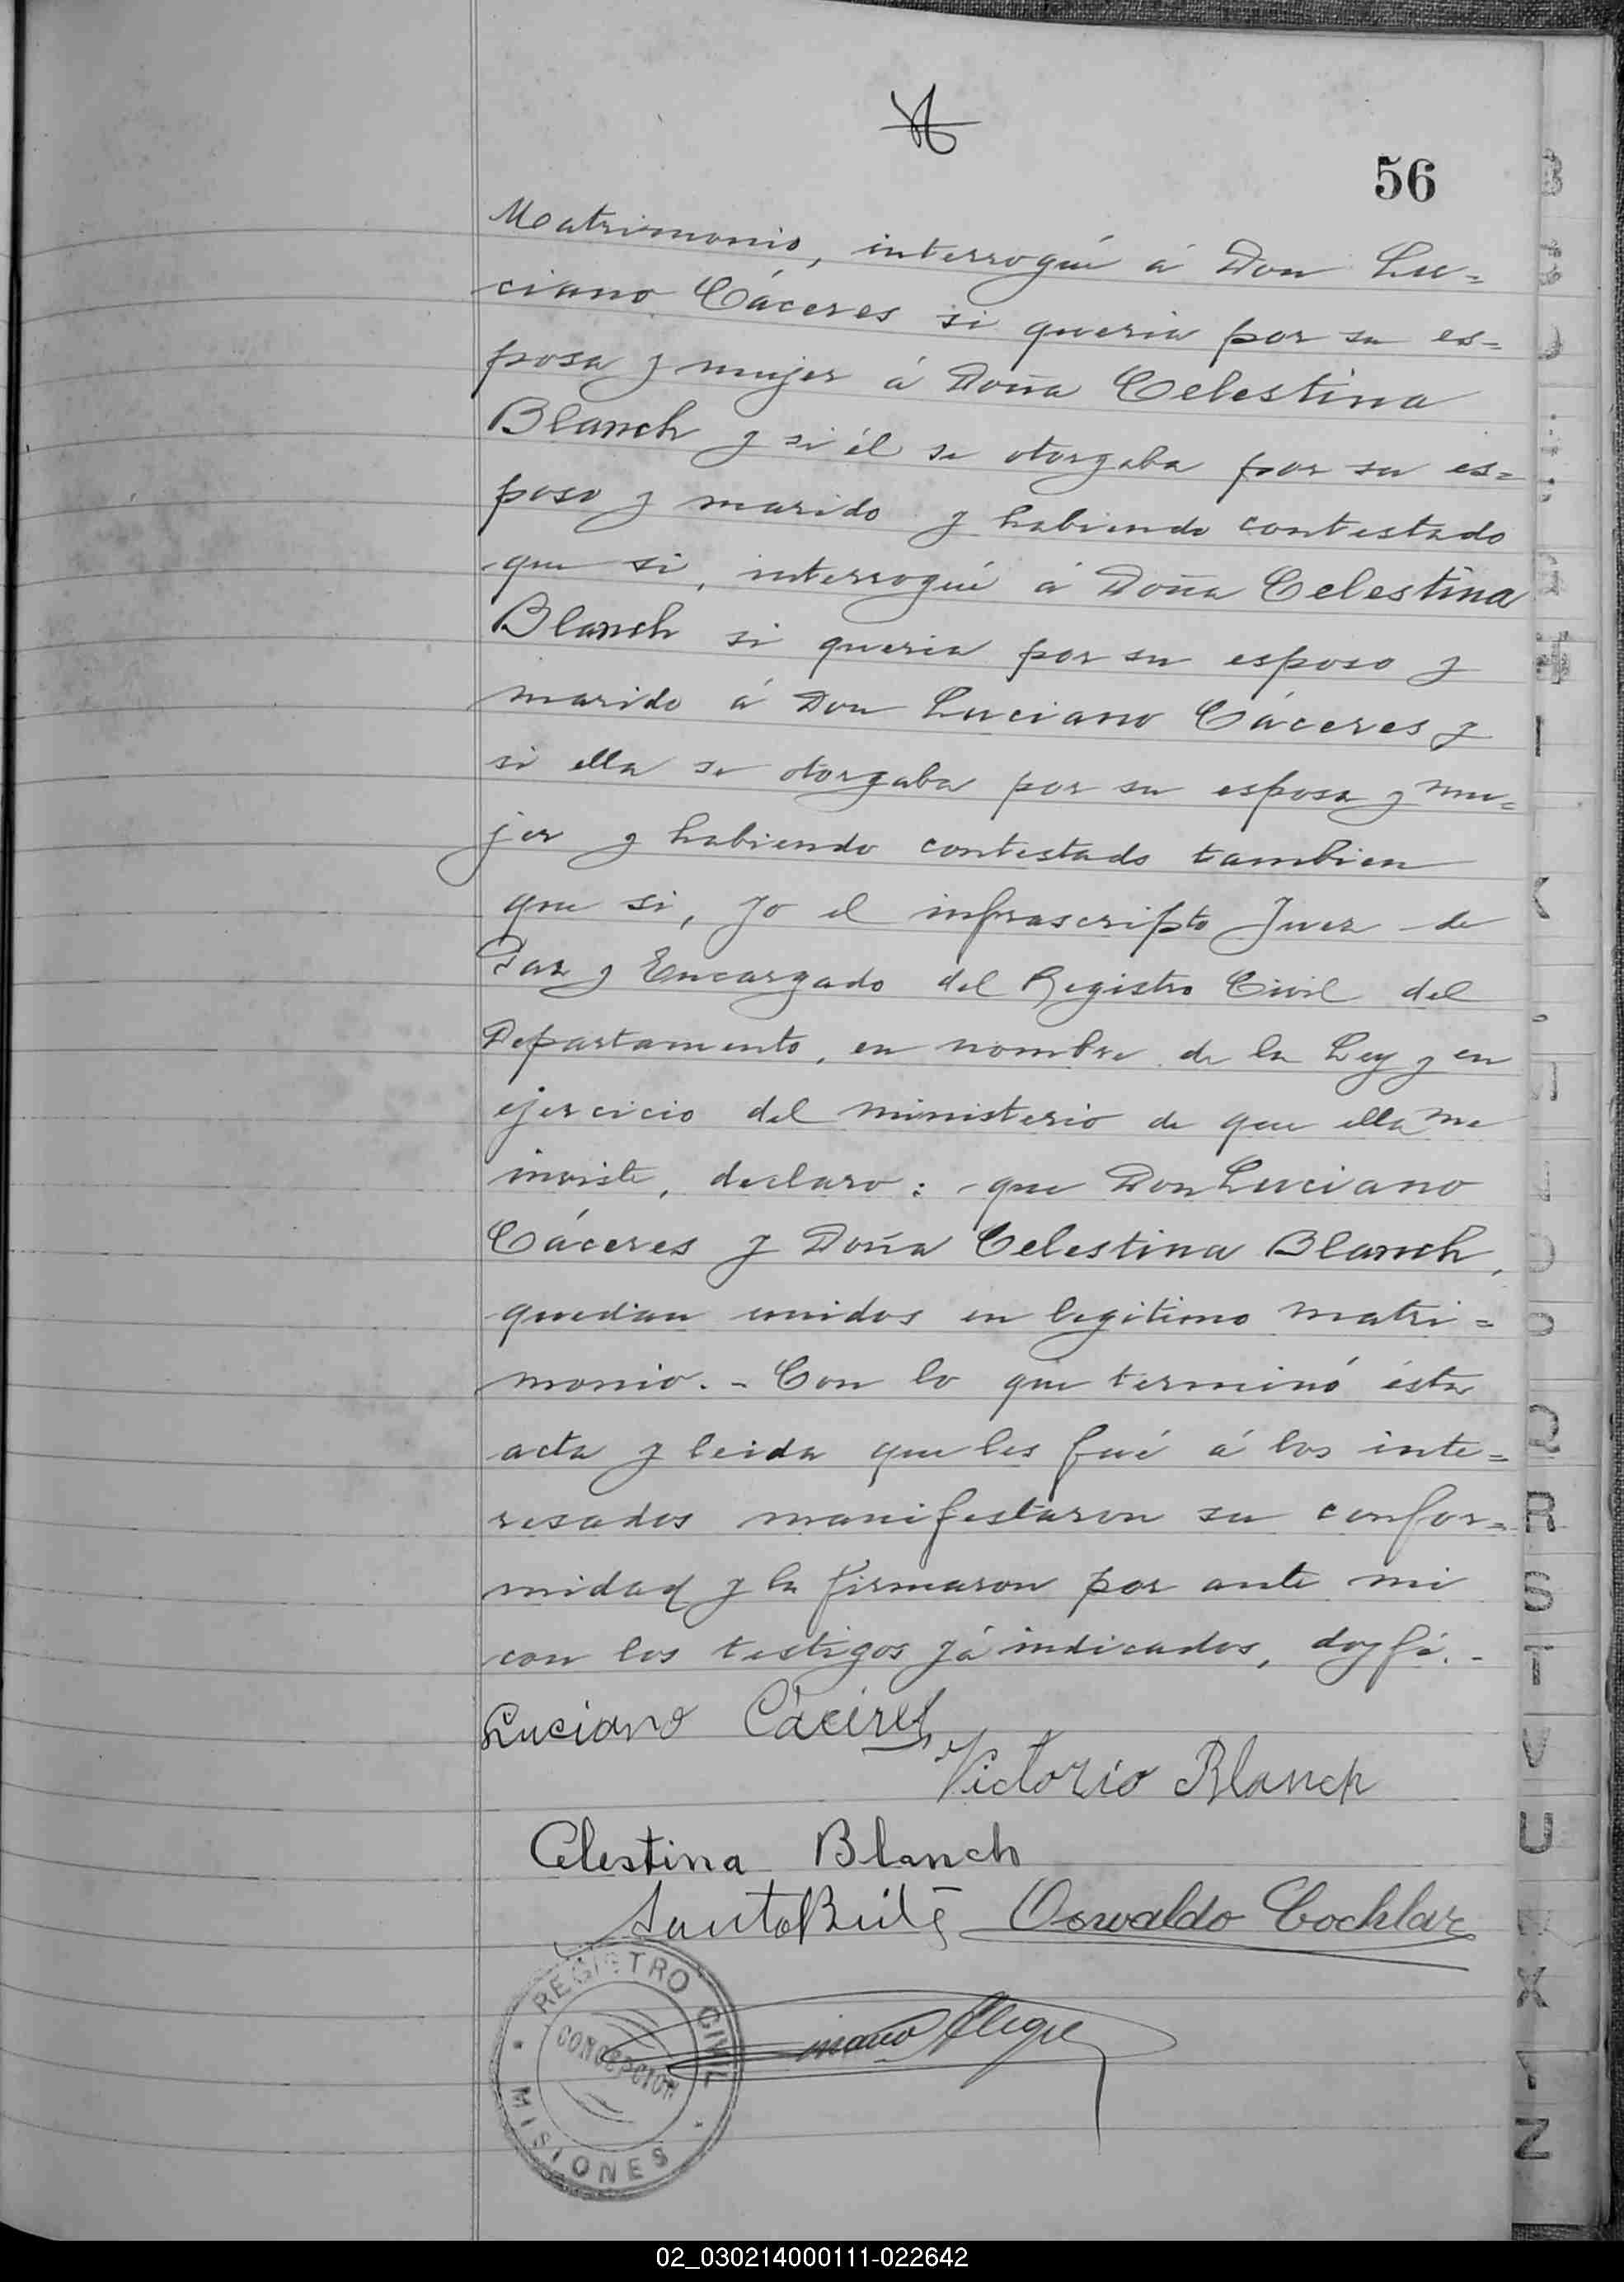 56
Matrimonio, interrogué á Don Lu=
ciano Cáceres si queria por su es=
posa y mujer á Doña Celestina
Blanch y si él se otorgaba por su es=
poso y marido y habiendo contestado
que si, interrogué á Doña Celestina
Blanch si queria por su esposo y
marido á Don Luciano Cáceres y
si ella se otorgaba por su esposa y mu=
jer y habiendo contestado tambien
que si, yo el infrascripto Juez de
Paz y Encargado del Registro Civil del
Departamento, en nombre de la Ley y en
ejercicio del ministerio de que ella me
inviste, declaro: que Don Luciano
Cáceres y Doña Celestina Blanch,
quedian unidos en legitimo matri=
monio. - Con lo que terminó ésta
acta y leida que les fué á los inte=
resados manifestaron su confor=
midad y la firmaron por ante mi
con los testigos yá indicados, doy fé. -
Luciano Cáceres
Victorio Blanch
Celestina Blanch
Oswaldo Cochlar
Alegre
REGISTRO CIVIL
CONCEPCION
MISIONES
Q
R
S
T
V
U
X
Z
02_030214000111-022642